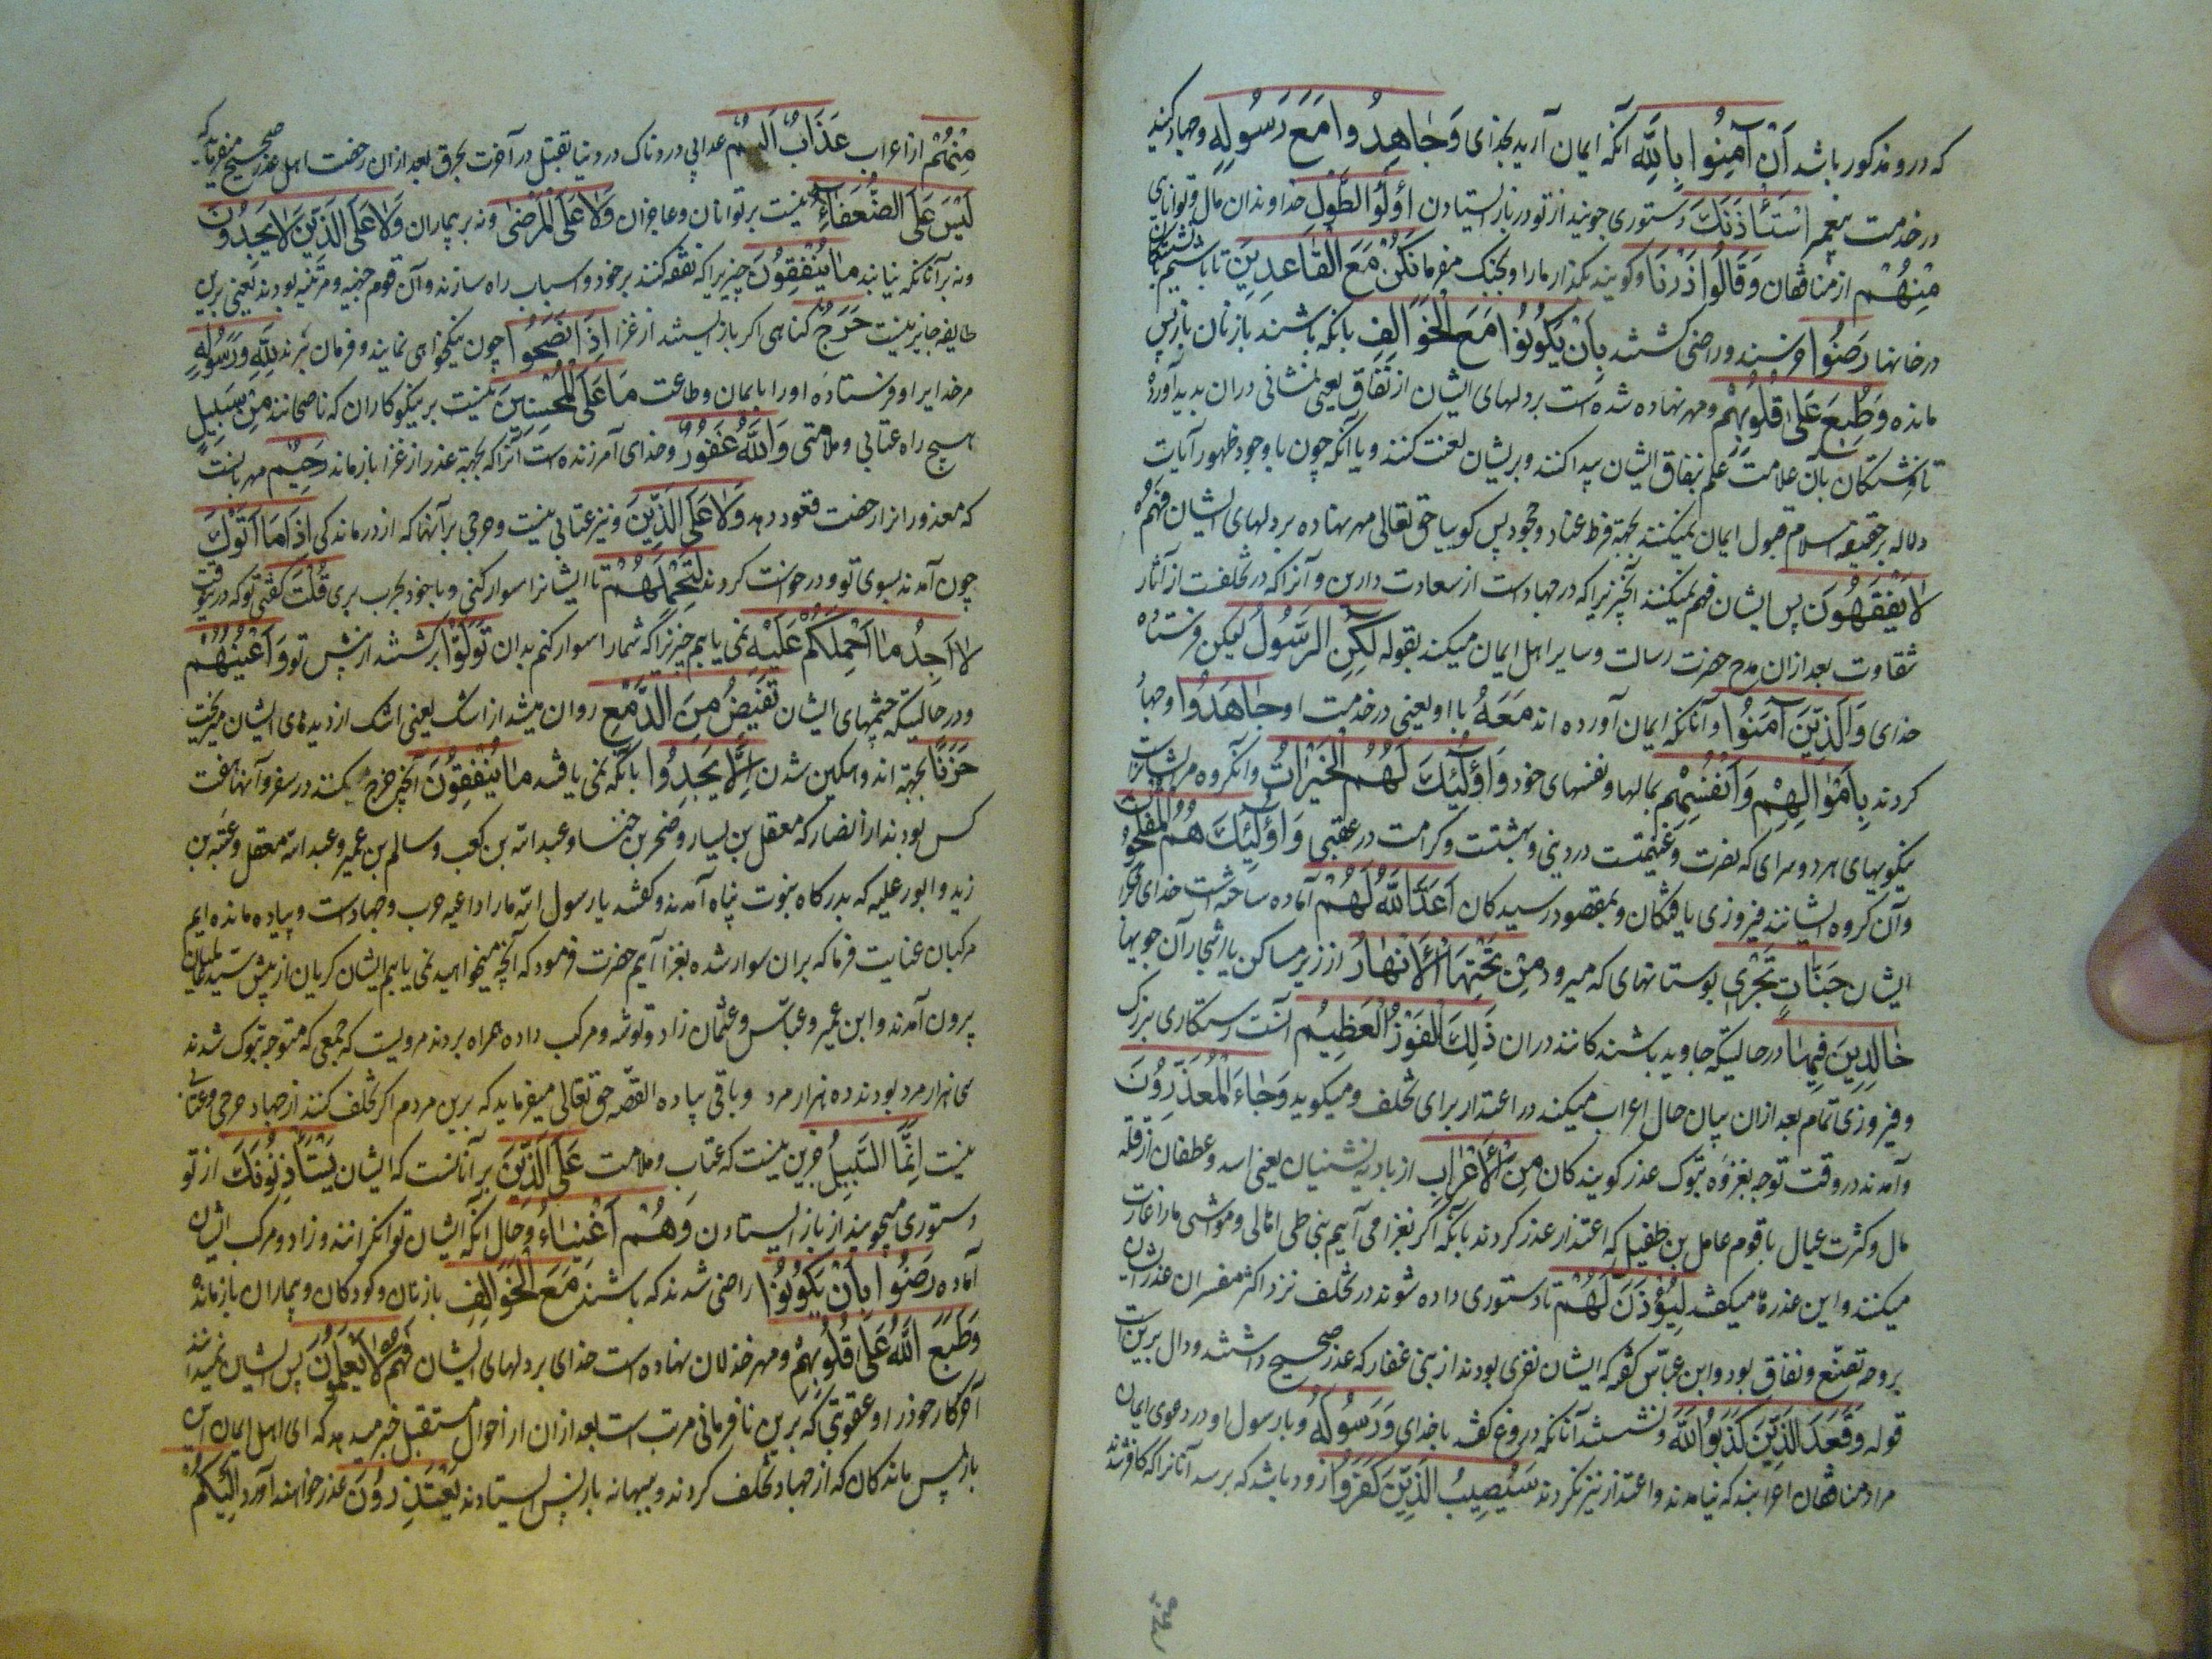 که درو مذکور باشد اَنْ آمِنُوا بِاللّهِ آنکه ایمان آرید بخدای وَجٰاهِدُوا مَعَ رَسُولِهِ وجهاد کنید
در خدمت پیغمبر اسْتَأْذَنَكَ دستوری جویند از تو در باز ایستادن اُولُوا الطَّوْلِ خداوندان مال و توانایی
مِنْهُمْ از منافقان وَقَالُوا ذَرْنَا و گویند بگذار ما را و بجنک مفرما نَكُنْ مَعَ الْقٰاعِدِينَ تا باشیم با نشستکان
در خانها رَضُوا خرسند و راضی کشتند بِاَنْ يَكُونُوا مَعَ الْخَوٰالِفِ بانکه باشند بازنان بازپس
مانده وَطُبِعَ عَلىٰ قُلُوبِهِمْ و مهر نهاده شده است بر دلهای ایشان از نفاق یعنی نشانی دران پدید آورده
تا فرشتکان بآن علامت علم بنفاق ایشان پیدا کنند و بریشان لعنت کنند و یا آنکه چون با وجود ظهور آیات
داله بر حقیقة اسلام قبول ایمان نمیکنند بجهة فرط عناد و جحود پس کوییا حق تعالی مهر نهاده بر دلهای ایشان فَهُمْ
لاٰ يَفْقَهُونَ پس ایشان فهم نمیکنند آنچیزیرا که در جهادست از سعادت دارین و آنرا که در تخلفست از آثار
شقاوت بعد ازان مدح حضرت رسالت و سایر اهل ایمان میکند بقوله لٰكِنِ الرَّسُولُ لیکن فرستاده
خدای وَالَّذِينَ آمَنُوا و آنانکه ایمان آورده اند مَعَهُ با او یعنی در خدمت او جٰاهَدُوا وجهاد
کردند بِاَمْوٰالِهِمْ وَاَنْفُسِهِمْ بمالها و نفسهای خود وَاُولٰئِكَ لَهُمُ الْخَيْرٰاتُ و آنکروه مر ایشانراست
نیکوییهای هر دو سرای که نصرت و غنیمتست در دینی و بهشتست و کرامت در عقبی وَاُولٰئِكَ هُمُ الْمُفْلِحُونَ
و آن کروه ایشانند فیروزی یافتکان و بمقصود رسیدکان اَعَدَّ اللّهُ لَهُمْ آماده ساخته است خدای برای
ایشان جَنّٰاتٍ تَجْرِی بوستانهای که میرود مِنْ تَحْتِهَا الْاَنْهٰارُ از زیر مساکن یا اشجار آن جویها
خٰالِدِينَ فِيهٰا در حالتیکه جاوید باشند کانند دران ذٰلِكَ الْفَوْزُ الْعَظِيمُ آنست رستکاری بزرک
و فیروزی تمام بعد ازان بیان حال اعراب میکند در اعتذار برای تخلف و میکوید وَجٰاءَ الْمُعَذِّرُونَ
و آمدند در وقت توجه بغزوه تبوک عذر کویندکان مِنَ الْاَعْرٰابِ از بادیه نشینان یعنی اسد و غطفان از قلة
مال و کثرت عیال یا قوم عامل بن طفیل که اعتذار عذر کردند بآنکه اگر بغزا می آییم بنی طی اهالی و مواشی ما را غارت
میکنند و این عذرها میکفتند لِيُؤْذَنَ لَهُمْ تا دستوری داده شوند در تخلف نزد اکثر مفسران عذر ایشان
بر وجه تصنع و نفاق بود و ابن عباس کفته که ایشان نفری بودند از بنی غفار که عذر صحیح داشتند و دال برین است
قوله وَقَعَدَ الَّذِينَ كَذَبُوا اللّهَ و نشستند آنانکه دروغ کفتند با خدای وَرَسُولَهُ و با رسول او در دعوی ایمان
مراد منافقان اعرابند که نیامدند و اعتذار نیز نکردند سَيُصِيبُ الَّذِينَ كَفَرُوا زود باشد که برسد آنانرا که کافر شدند
مِنْهُمْ از اعراب عَذٰابٌ اَلِيمٌ عذابی دردناک در دنیا بقتل در آخرت بحرق بعد ازان رخصت اهل عذر صحیح میفرماید که
لَيْسَ عَلَى الضُّعَفٰاءِ نیست بر ناتوانان و عاجزان وَلاٰ عَلَى الْمَرْضىٰ و نه بر بیماران وَلاٰ عَلَى الَّذِينَ لاٰ يَجِدُونَ
و نه بر آنانکه نیابند مٰا يُنْفِقُونَ چیزیرا که نفقه کنند بر خود و اسباب راه سازند و آن قوم جهنیه و مزنیه بودند یعنی برین
طایفه جایز نیست حَرَجٌ کناهی اکر باز ایستند از غزا اِذٰا نَصَحُوا چون نیکخواهی نمایند و فرمان برند لِلّهِ وَرَسُولِهِ
مر خدایرا و فرستاده او را بایمان و طاعت مٰا عَلَى الْمُحْسِنِينَ نیست بر نیکوکاران که ناصحانند مِنْ سَبِيلٍ
هیچ راه عتابی و ملامتی وَاللّهُ غَفُورٌ و خدای آمرزنده است آنرا که بجهة عذر از غزا باز ماند رَحِيمٌ مهربانست
که معذورانرا رخصت قعود دهد وَلاٰ عَلَى الَّذِينَ و نیز عتابی نیست و حرجی بر آنها که از درماندکی اِذٰا مٰا اَتَوْكَ
چون آمدند بسوی تو و درخواست کردند لِتَحْمِلَهُمْ تا ایشانرا سوار کنی و با خود بحرب بری قُلْتَ کفتی تو که درین وقت
لاٰ اَجِدُ مٰا اَحْمِلُكُمْ عَلَيْهِ نمی یابم چیزیرا که شما را سوار کنم بدان تَوَلَّوْا برکشتند از پیش تو وَاَعْيُنُهُمْ
و در حالتیکه چشمهای ایشان تَفِيضُ مِنَ الدَّمْعِ روان میشد از اشک یعنی اشک از دیدهای ایشان میریخت
حَزَنًا بجهة اندوهکین شدن اَلّاٰ يَجِدُوا بآنکه نمی یافتند مٰا يُنْفِقُونَ آنچه خرج کنند در سفر و آنها هفت
کس بودند از انصار که معقل بن یسار و صخر بن خنسا و عبد الله بن کعب و سالم بن عمیر و عبد الله مغفل و عتبه بن
زید و ابو علیه که بدرکاه نبوت پناه آمدند و کفتند یا رسول الله ما را داعیه حرب و جهادست و پیاده مانده ایم
مرکبان عنایت فرما که بران سوار شده بغزا آییم حضرت فرمود که آنچه میخواهید نمی یابم ایشان کریان از پیش سید عالمیان
بیرون آمدند و ابن عمیر و عباس و عثمان زاد و توشه و مرکب داده همراه بردند مرویست که جمعی که متوجه تبوک شدند
سی هزار مرد بودند ده هزار مرد و باقی پیاده القصه حق تعالی میفرماید که برین مردم اکر تخلف کنند از جهاد حرجی و عتابی
نیست اِنَّمَا السَّبِيلُ جز این نیست که عتاب و ملامت عَلَى الَّذِينَ بر آنانست که ایشان يَسْتَأْذِنُونَكَ از تو
دستوری میجویند از باز ایستادن وَهُمْ اَغْنِيٰاءُ و حال آنکه ایشان توانکرانند و زاد و مرکب ایشان
آماده رَضُوا بِاَنْ يَكُونُوا راضی شدند که باشند مَعَ الْخَوٰالِفِ بازنان و کودکان و بیماران باز مانده
وَطَبَعَ اللّهُ عَلىٰ قُلُوبِهِمْ و مهر خذلان نهاده است خدای بر دلهای ایشان فَهُمْ لاٰ يَعْلَمُونَ پس ایشان نمیدانند
آخر کار خود را و عقوبتی که برین نافرمانی مرتب است بعد ازان از احوال مستقبل خبر میدهد که ای اهل ایمان این
باز پس ماندکان که از جهاد تخلف کردند و ببهانه باز پس ایستادند يَعْتَذِرُونَ عذر خواهند آورد اِلَيْكُمْ